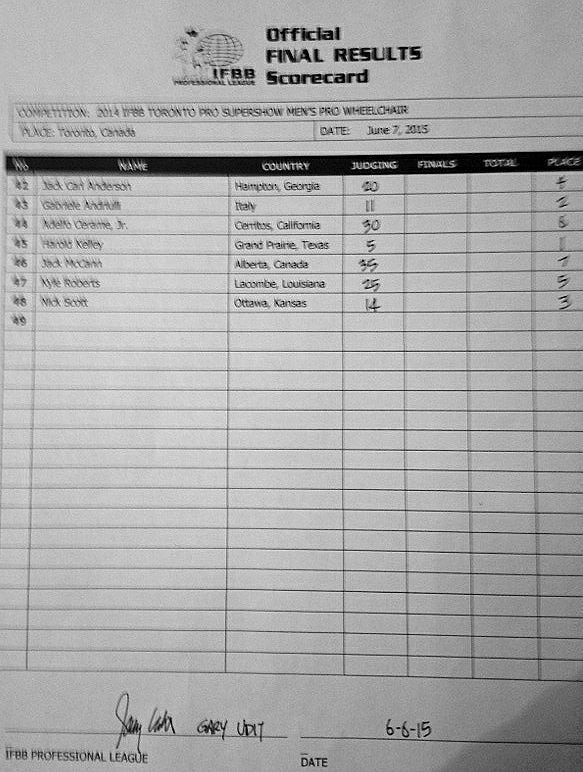 Official
FINAL RESULTS
Scorecard
IFBB
PROFESSIONAL LEAGUE
COMPETITION: 2014 IFBB TORONTO PRO SUPERSHOW MEN'S PRO WHEELCHAIR
PLACE: Toronto, Canada DATE: June 7, 2015
No NAME COUNTRY JUDGING FINALS TOTAL PLACE
42 Jack Carl Anderson Hampton, Georgia 20
43 Gabriele Andriulli Italy 11 2
44 Adelfo Cerame, Jr. Cerritos, California 30
45 Harold Kelley Grand Prairie, Texas 5 1
46 Jack McCann Alberta, Canada 35 7
47 Kyle Roberts Lacombe, Louisiana 25 5
48 Nick Scott Ottawa, Kansas 14 3
49
GARY UDIT 6-6-15
IFBB PROFESSIONAL LEAGUE DATE